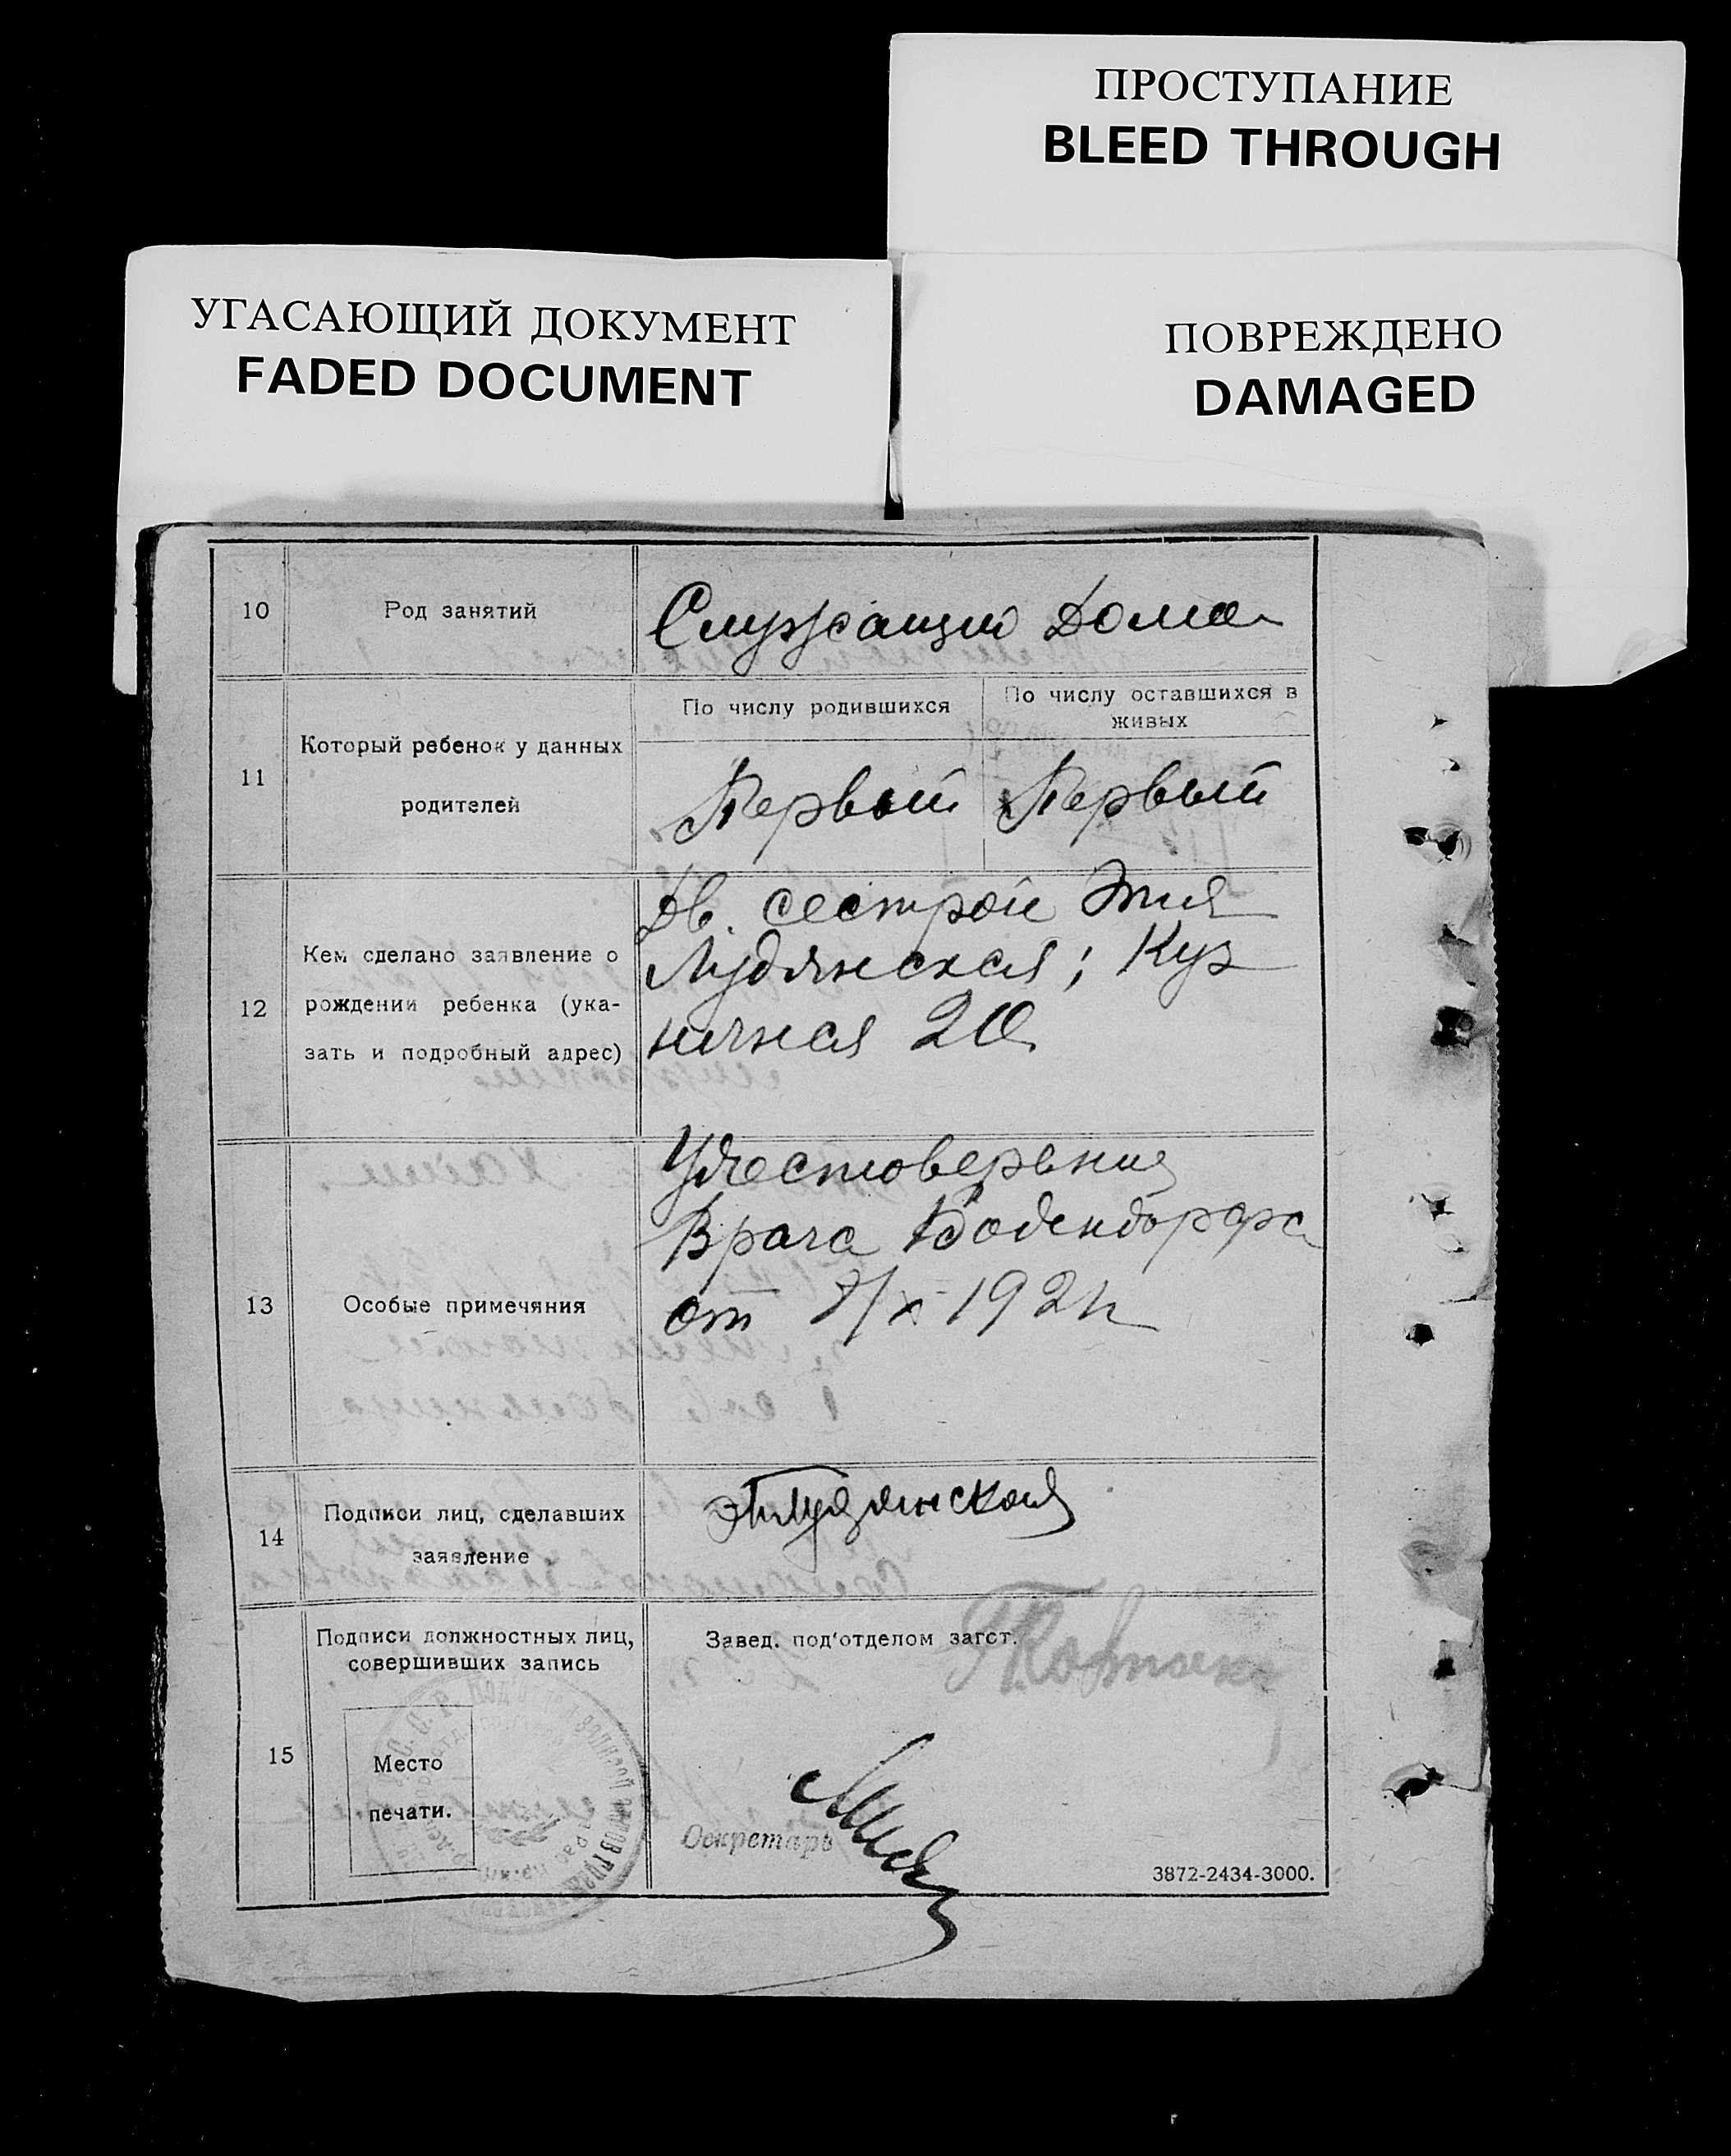 ПРОСТУПАНИЕ
BLEED THROUGH
УГАСАЮЩИЙ ДОКУМЕНТ
FADED DOCUMENT
ПОВРЕЖДЕНО
DAMAGED
10
Род занятий
Служащий Дома
11
Который ребенок у данных
родителей
По числу родившихся
По числу оставшихся в
живых
Первый
Первый
12
Кем сделано заявление о
рождении ребенка (ука-
зать и подробный адрес)
Дв. сестрой
Лудянская; Куз
ничная 20
13
Особые примечяния
Врача Бодендорфа
от 192
14
Подписи лиц, сделавших
заявление
Лудянская
15
Подписи должностных лиц,
совершивших запись
Место
печати.
Завед. под'отделом загст.
Секретарь
3872-2434-3000.